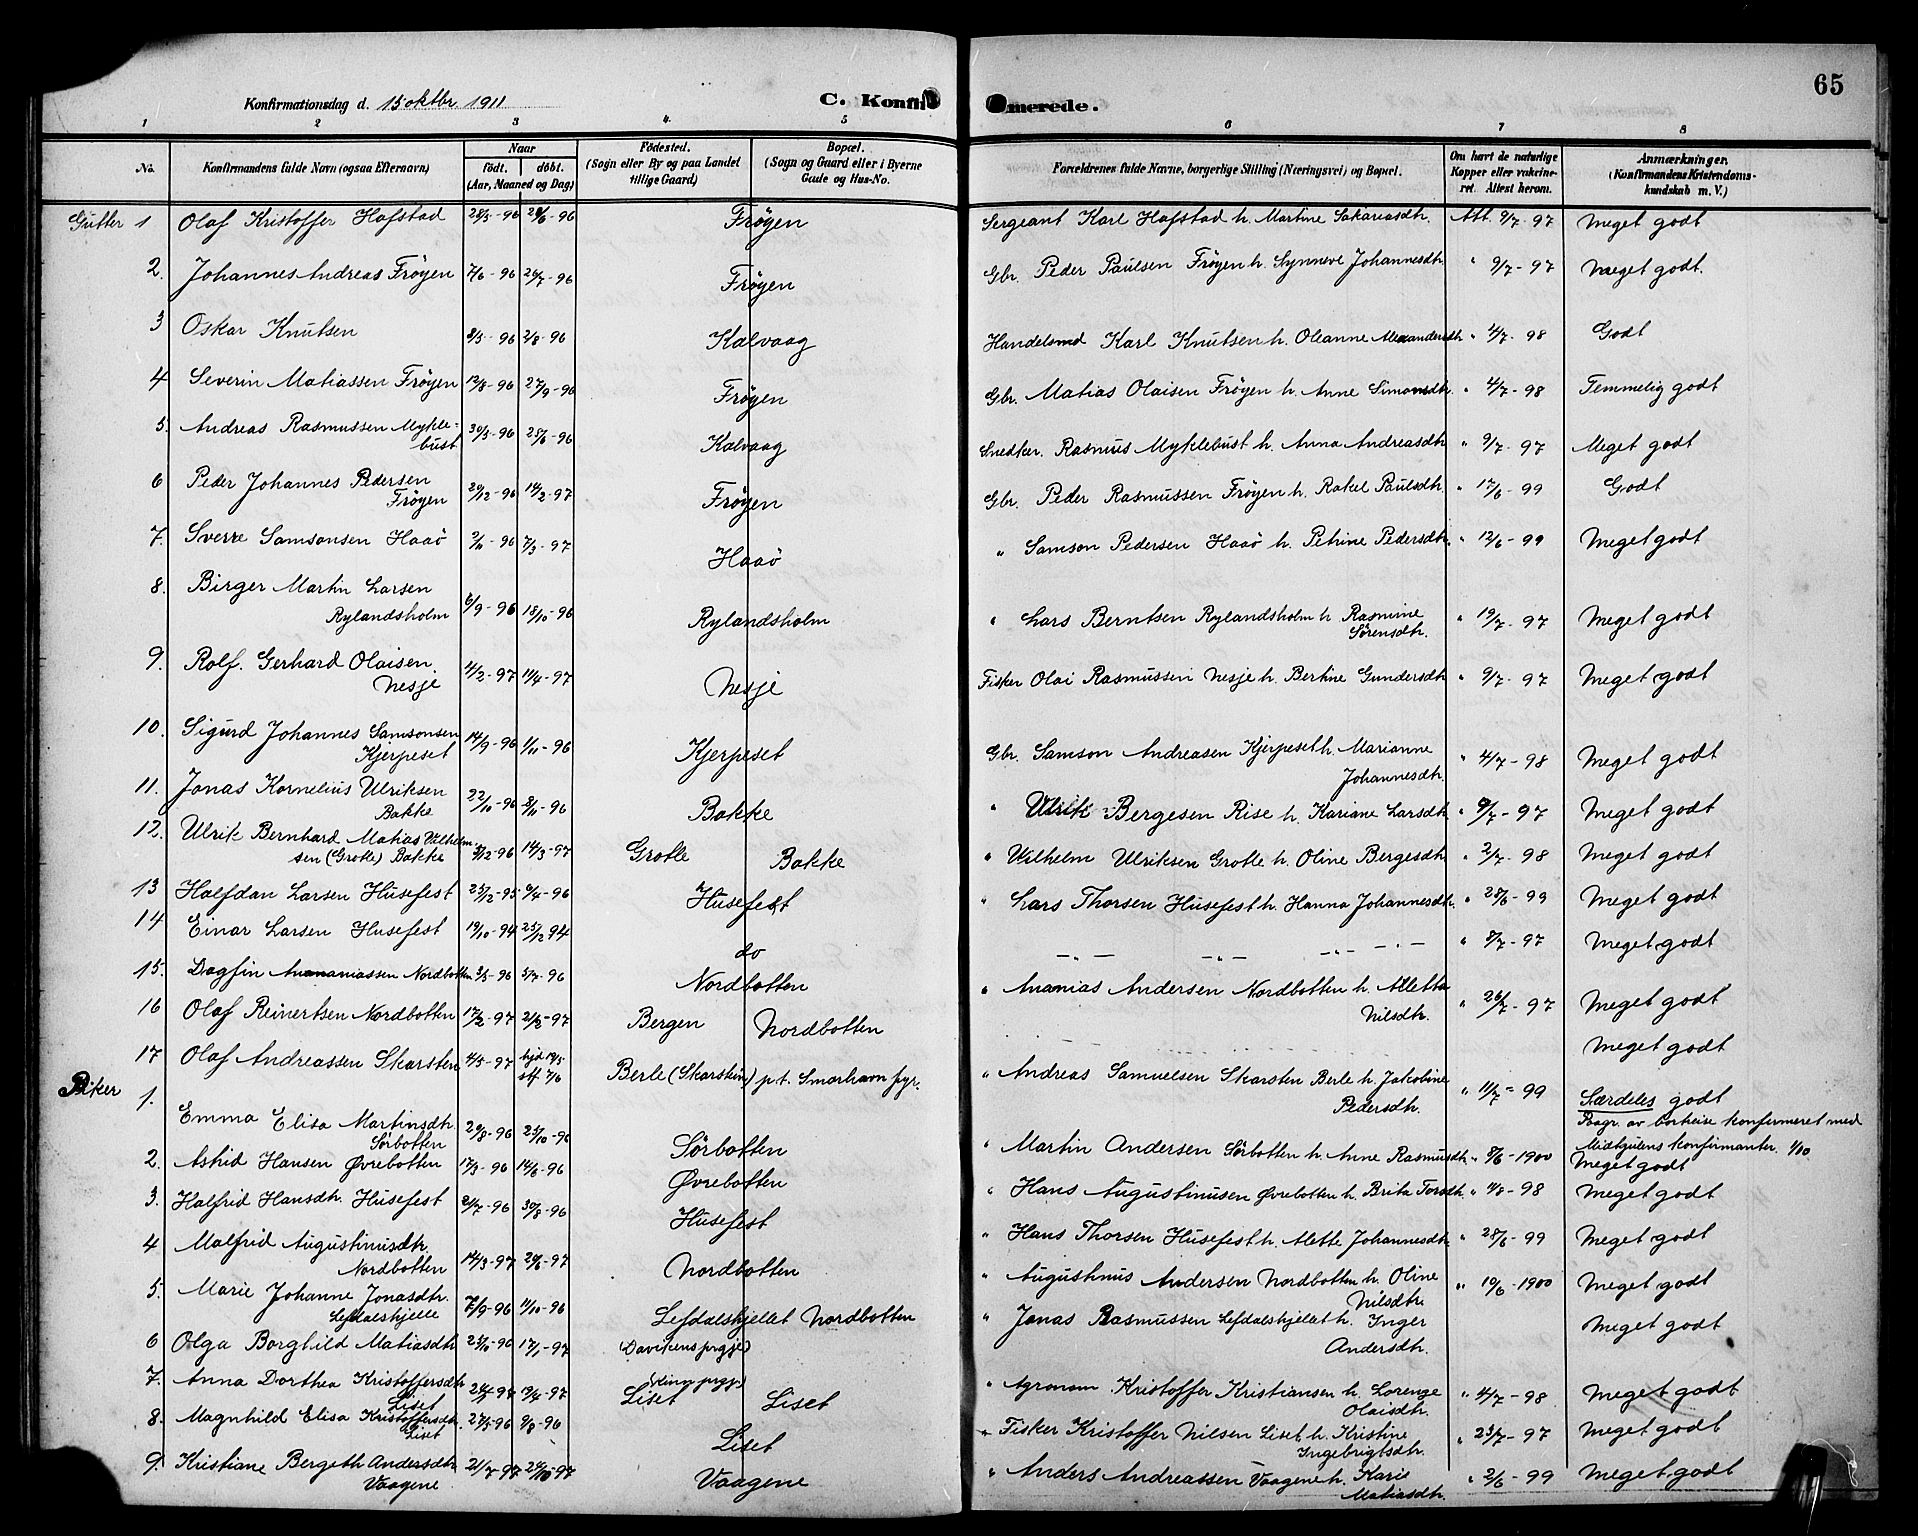 65
Konfirmationsdag d. 15 oktbr. 1911
C. Konfirmerede.
1 2 3 4. 5 6 7 8
No. Konfirmandens fulde Navn (ogsaa Efternavn) Naar født. døbt. (Aar, Maaned og Dag) Fødested. (Sogn eller By og paa Landet tillige Gaard) Bopæl. (Sogn og Gaard eller i Byerne Gade og Hus-No. Forældrenes fulde Navne, borgerlige Stilling (Næringsvei) og Bopæl. Om havt de naturlige Kopper eller vakcineret. Attest herom. Anmærkninger. (Konfirmandens Kristendomskundskab m. V.)
Gutter 1 Olaf Kristoffer Hofstad Frøyen Sergeant Karl Hofstad h. Martine Sakariasdh. Att. 9/7-97 Meget godt
2. Johannes Andreas Frøyen 7/6-96 26/7-96 Frøyen Gbr. Peder Paulsen Frøyen h. Synneve Johannesdh. " 9/7-97 Meget godt.
3 Oskar Knutsen 8/5-96 2/8-96 Kalvaag Handelsmd Karl Knutsen h. Oleanne Alexandersdh " 4/7-98 Godt
4 Severin Matiassen Frøyen 12/8-96 27/9-96 Frøyen Gbr. Matias Olaisen Frøyen h. Anne Simonsdh. " 4/7-98 Temmelig godt
5. Andreas Rasmussen Myklebust 30/5-96 25/6-96 Kalvaag Snedker. Rasmus Myklebust h. Anna Andreasdh " 9/7-97 Meget godt
6 Peder Johannes Pedersen Frøyen 20/12-96 14/2-97 Frøyen Gbr. Peder Rasmussen Frøyen h. Rakel Paulsdh. " 17/6-99 Godt
7. Sverre Samsonsen Haaö 2/11-96 7/3-97 Haaö " Samson Pedersen Haaö h. Petrine Pedersdh. " 12/6-99 Meget godt
8. Birger Martin Larsen Rylandsholm 6/9-96 18/10-96 Rylandsholm " Lars Berntsen Rylandsholm h Rasmine Sörensdh. " 19/7-97 Meget godt
9. Rolf. Gerhard Olaisen Nesje 4/2-97 11/4-97 Nesje Fisker Olai Rasmussen Nesje h. Bertine Gundersdh " 9/7-97 Meget godt
10. Sigurd Johannes Samsonsen Kjerpeset 14/9-96 1/11-96 Kjerpeset Gbr. Samson Andreasen Kjerpeset h. Marianne Johannesdh. " 4/7-98 Meget godt
11. Jonas Kornelius Ulriksen Bakke 22/10-96 8/11-96 Bakke " Ulrik Bergesen Rise h. Kariane Larsdh " 9/7-97 Meget godt
12. Ulrik Bernhard Matias Vilhelmsen (Grotle) Bakke 14/3-97 Grotle Bakke " Wilhelm Ulriksen Grotle h. Oline Bergesdh " 2/7-98 Meget godt
13 Halfdan Larsen Husefest 23/12-95 6/4-96 Husefest " Lars Thorsen Husefest h. Hanna Johannesdh. " 28/6-99 Meget godt
14 Einar Larsen Husefest 19/10-94 25/12 94 do — " — — " — — " — " 8/7-97 Meget godt
15. Dagfin Ananiassen Nordbotten 3/5-96 5/7-96 Nordbotten " Ananias Andersen Nordbotten h. Alletta Nilsdh. " 26/7-97 Meget godt
16 Olaf Reinertsen Nordbotten Bergen Nordbotten Meget godt
17 Olaf Andreassen Skarsten 4/5-97 hjd 14/5 stf 7/6 Berle (Skarstein) p.t. Smørhavn fyr. " Andreas Samuelsen Skarsten Berle h. Jakobine Pedersdh. " 11/7-99 Særdeles godt
Paagr. av bortreise konfirmeret med Midtgulens konfirmanter 1/10.
Piker 1. Emma Elisa Martinsdh. Sörbotten 20/8-96 25/10-96 Sörbotten " Martin Andersen Sörbotten h. Anne Rasmusdh " 8/6-1900 Meget godt
2. Astrid Hansen Øvrebotten 17/3-96 14/6-96 Øvrebotten " Hans Augustinusen Øvrebotten h. Brita Torsdh. " 4/8-98 Meget godt
3. Halfrid Hansdh. Husefest 2/7-96 30/8-96 Husefest " Hans Thorsen Husefest h. Alette Johannesdh. " 28/6-99 Meget godt
4 Malfrid Augustinusdh. Nordbotten 14/3-97 Nordbotten " Augustinus Andersen Nordbotten h. Oline Nilsdh. " 19/6-1900 Meget godt
5. Marie Johanne Jonasdh. Lefdalshjelle 7/9-96 4/10-96 Lefdalshjellet Nordbotten " Jonas Rasmussen Lefdalshjellet h. Inger Andersdh. Meget godt
6 Olga Borghild Matiasdh 25/10-96 17/1-97 (Davikens prgj)
7. Anna Dorthea Kristoffersdh Liset Liset Liset " Agronom Kristoffer Kristiansen h. Lorenze Olaisdh. " 4/7-98 Meget godt
8. Magnhild Elisa Kristoffersdh. Liset 27/5-96 9/8-96 Liset " Fisker Kristoffer Nilsen Liset h. Kristine Ingebrigtsdh. " 23/7-97 Meget godt
9. Kristiane Bergeth Andersdh Vaagene 21/7-97 24/10-97 Vaagene " Anders Andreassen Vaagene h. Karie Matiasdh. " 2/6-99 Meget godt